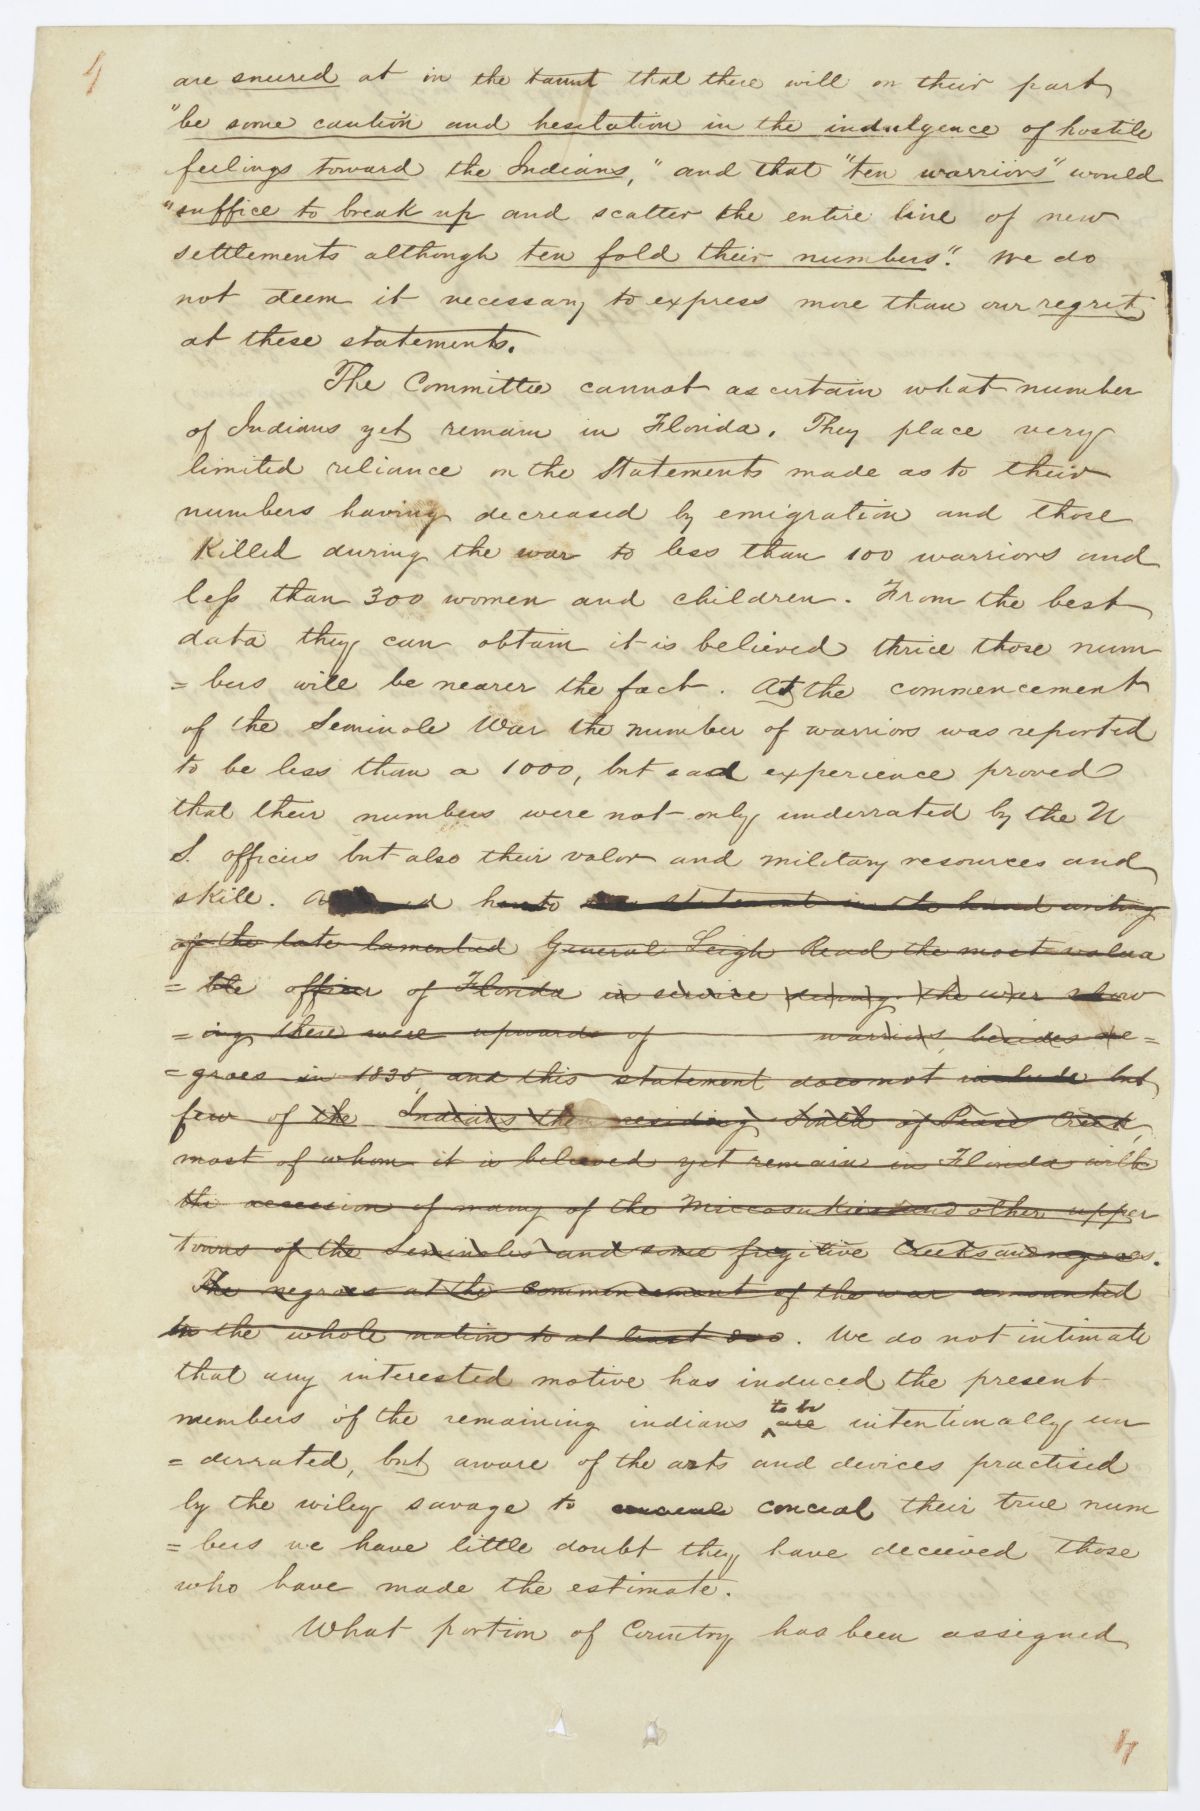 4
are sneered at in the taunt that there will on their part
"be some caution and hesitation in the indulgence of hostile
feelings toward the Indians," and that "ten warriors" would
"suffice to break up and scatter the entire line of new
settlements although ten fold their numbers". We do
not deem it necessary to express more than our regret
at these statements.
The Committee cannot ascertain what number
of Indians yet remain in Florida. They place very
limited reliance on the Statements made as to their
numbers having decreased by emigration and those
Killed during the war to less than 100 warriors and
less than 300 women and children. From the best
data they can obtain it is believed thrice those num
=bers will be nearer the fact. At the commencement
of the Seminole War the number of warriors was reported
to be less than a 1000, but sad experience proved
that their numbers were not only underrated by the U
S. officers but also their valor and military resources and
skill. hereto statement in the hand writing
of the late lamented General Leigh Read the most valua
=ble officer of Florida in service during the war show
=ing there were upwards of warriors, besides ne=
=groes in 1835, and this statement does not include but
few of the Indians then residing South of Pease Creek,
most of whom it is believed yet remain in Florida with
the accession of many of the Miccosukies and other upper
towns of the Seminoles and some fugitive Creeks and negroes.
The negroes at the commencement of the war amounted
in the whole nation to at least 300. We do not intimate
that any interested motive has induced the present
to be
members of the remaining indians are intentionally un
=derrated, but aware of the arts and devices practised
by the wiley savage to conceal their true num
=bers we have little doubt they have deceived those
who have made the estimate.
What portion of Country has been assigned
4